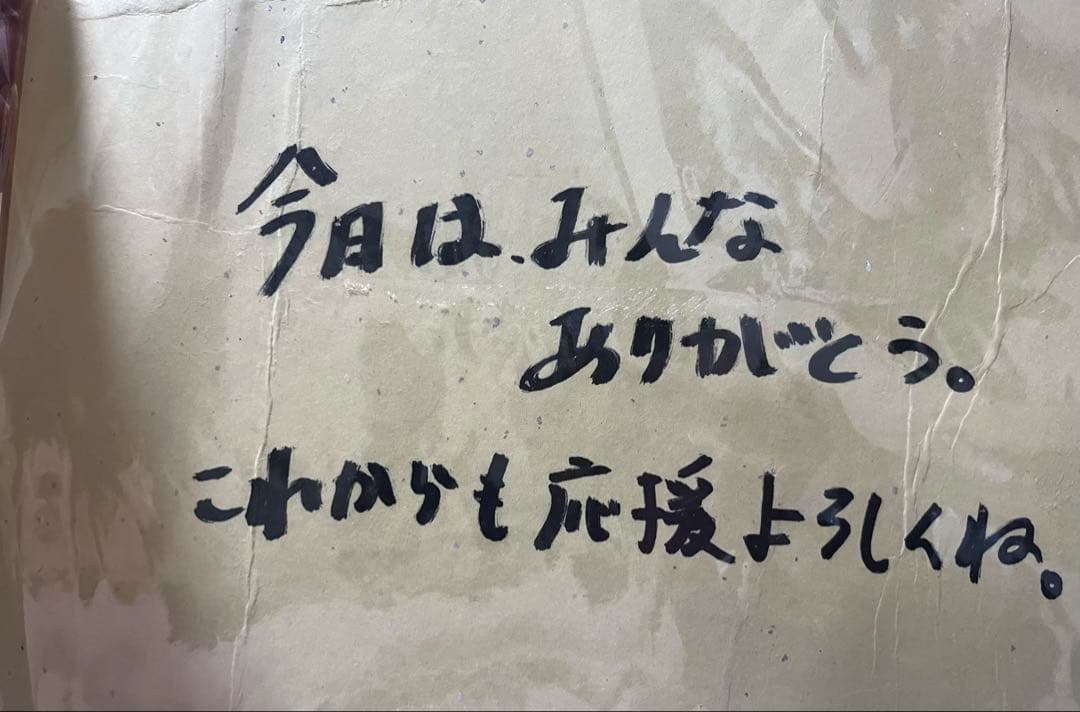 今日は、みんな
ありがとう。
これからも応援よろしくね。